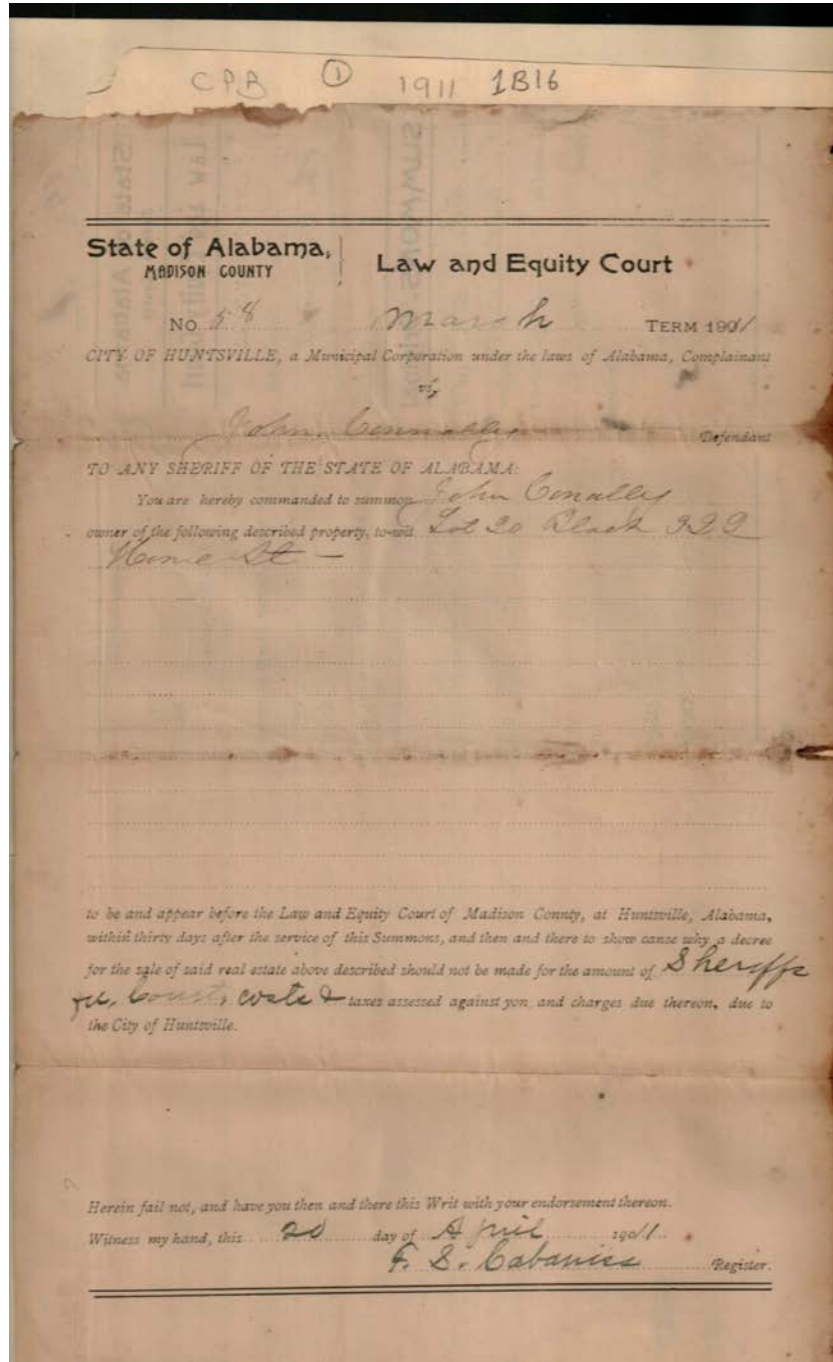 CPB ① 1911 1B16
State of Alabama,
MADISON COUNTY
Law and Equity Court
No. 58 March TERM 1911
CITY OF HUNTSVILLE, a Municipal Corporation under the laws of Alabama, Complainant
vs,
John Connally Defendant
TO ANY SHERIFF OF THE STATE OF ALABAMA:
You are hereby commanded to summon John Conally
owner of the following described property, to-wit Lot 20 Block 322
St —
to be and appear before the Law and Equity Court of Madison County, at Huntsville, Alabama,
within thirty days after the service of this Summons, and then and there to show cause why a decree
for the sale of said real estate above described should not be made for the amount of Sheriffs
fee, Court, costs & taxes assessed against you and charges due thereon, due to
the City of Huntsville.
Herein fail not, and have you then and there this Writ with your endorsement thereon.
Witness my hand, this 20 day of April 1911
F. S. Cabaniss Register.